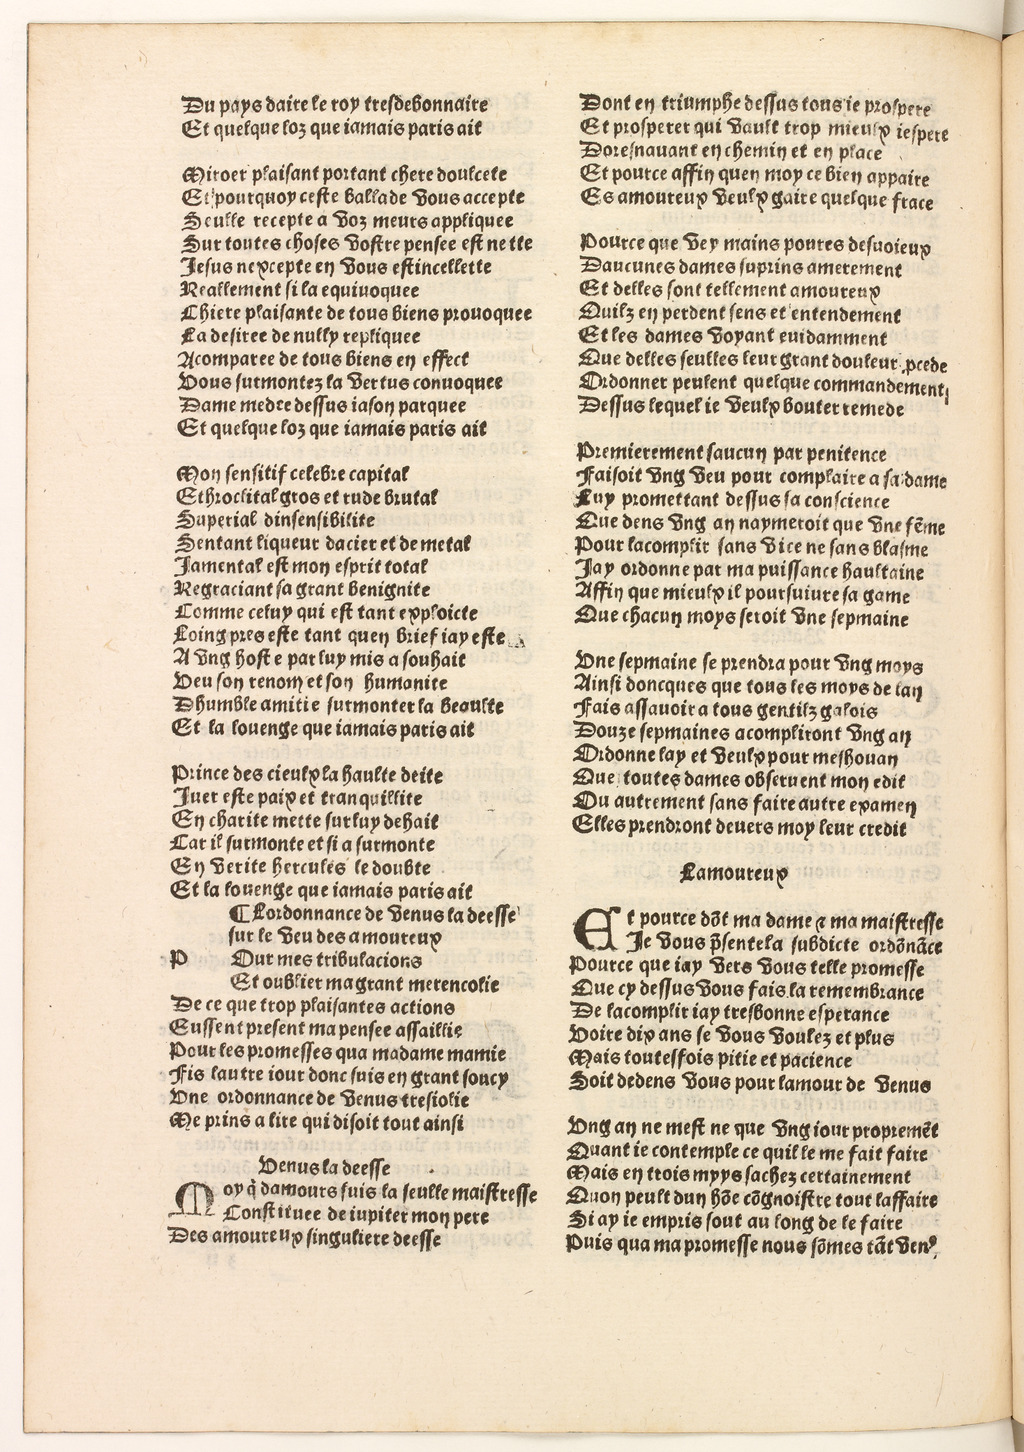 Du pays daire le roy tresdebonnaire
Et quelque loz que iamais paris ait
Miroer plaisant portant chere doulcete
Et pourquoy ceste ballade vous accepte
Seulle recepte a voz meurs appliquee
Sur toutes choses vostre pensee est nette
Jesus nexcepte en vous estincellette
Reallement si la equiuoquee
Chiere plaisante de tous biens prouoquee
La desiree de nully repliquee
Acomparee de tous biens en effect
Vous surmontez la vertus conuoquee
Dame medee dessus iason parquee
Et quelque loz que iamais paris ait
Mon sensitif celebre capital
Ethroclital gros et rude brutal
Superial dinsensibilite
Sentant liqueur dacier et de metal
Jamental est mon esprit total
Regraciant sa grant benignite
Comme celuy qui est tant exploicte
Loing pres este tant quen brief iay este
A vng hoste par luy mis a souhait
Veu son renom et son humanite
Dhumble amitie surmonter la beaulte
Et la louenge que iamais paris ait
Prince des cieulx la haulte deite
Juer este paix et tranquillite
En charite mette sur luy dehait
Car il surmonte et si a surmonte
En verite hercules le doubte
Et la louenge que iamais paris ait
¶ Lordonnance de venus la deesse
sur le veu des amoureux
P Our mes tribulacions
Et oublier ma grant merencolie
De ce que trop plaisantes actions
Eussent present ma pensee assaillie
Pour les promesses qua madame mamie
Fis lautre iour donc suis en grant soucy
Vne ordonnance de venus tresiolie
Me prins a lire qui disoit tout ainsi
Venus la deesse
Moy q̃ damours suis la seulle maistresse
Constituee de iupiter mon pere
Des amoureux singuliere deesse
Dont en triumphe dessus tous ie prospere
Et prosperer qui vault trop mieulx iespere
Doresnauant en chemin et en place
Et pource affin quen moy ce bien appaire
Es amoureux veulx gaire quelque frace
Pource que vey mains poures desuoieux
Daucunes dames suprins amerement
Et delles sont tellement amoureux
Quilz en perdent sens et entendement
Et les dames voyant euidamment
Que delles seulles leur grant douleur ꝓcede
Ordonner peulent quelque commandement
Dessus lequel ie veulx bouter remede
Premierement saucun par penitence
Faisoit vng veu pour complaire a sa dame
Luy promettant dessus sa conscience
Que dens vng an naymeroit que vne fẽme
Pour lacomplir sans vice ne sans blasme
Jay ordonne par ma puissance haultaine
Affin que mieulx il poursuiure sa game
Que chacun moys seroit vne sepmaine
Vne sepmaine se prendra pour vng moys
Ainsi doncques que tous les moys de lan
Fais assauoir a tous gentilz galois
Douze sepmaines acompliront vng an
Ordonne lay et veulx pour meshouan
Que toutes dames obseruent mon edit
Ou autrement sans faire autre examen
Elles prendront deuers moy leur credit
Lamoureux
Et pource dõt ma dame ⁊ ma maistresse
Je vous p̃sente la subdicte ordõnãce
Pource que iay vers vous telle promesse
Que cy dessus vous fais la remembrance
De lacomplir iay tresbonne esperance
Voire dix ans se vous voulez et plus
Mais toutesfois pitie et pacience
Soit dedens vous pour lamour de venus
Vng an ne mest ne que vng iour propremẽt
Quant ie contemple ce quil le me fait faire
Mais en trois myys sachez certainement
Quon peult dun hõe cõgnoistre tout laffaire
Si ay ie empris sout au long de le faire
Puis qua ma promesse nous sõmes tãt venꝰ